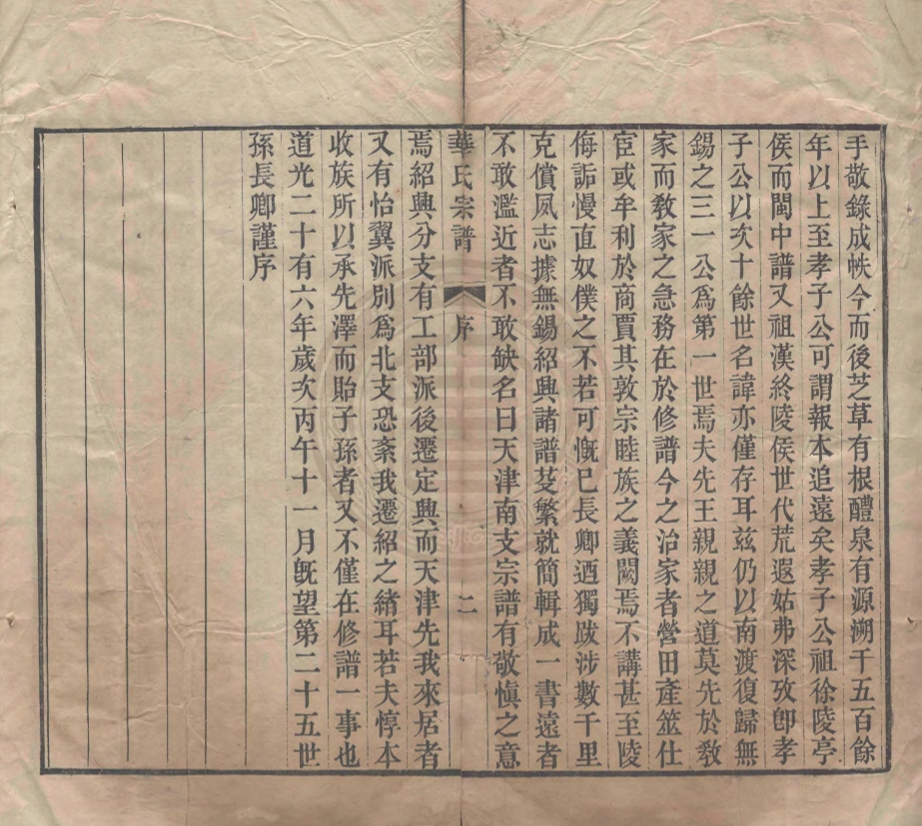 手敬錄成帙今而後芝草有根醴泉有源溯千五百餘
年以上至孝子公可謂報本追遠矣孝子公祖徐陵亭
侯而閩中譜又祖漢終陵侯世代荒遐姑弗深攷卽孝
子公以次十餘世名諱亦僅存耳茲仍以南渡復歸無
錫之三一公爲第一世焉夫先王親親之道莫先於敎
家而敎家之急務在於修譜今之治家者營田產筮仕
宦或牟利於商賈其敦宗睦族之義闕焉不講甚至陵
侮詬慢直奴僕之不若可慨已長卿迺獨跋涉數千里
克償夙志據無錫紹興諸譜芟繁就簡輯成一書遠者
不敢濫近者不敢缺名曰天津南支宗譜有敬愼之意
華氏宗譜 序 二
焉紹興分支有工部派後遷定興而天津先我來居者
又有怡翼派別爲北支恐紊我遷紹之緒耳若夫惇本
收族所以承先澤而貽子孫者又不僅在修譜一事也
道光二十有六年歲次丙午十一月旣望第二十五世
孫長卿謹序